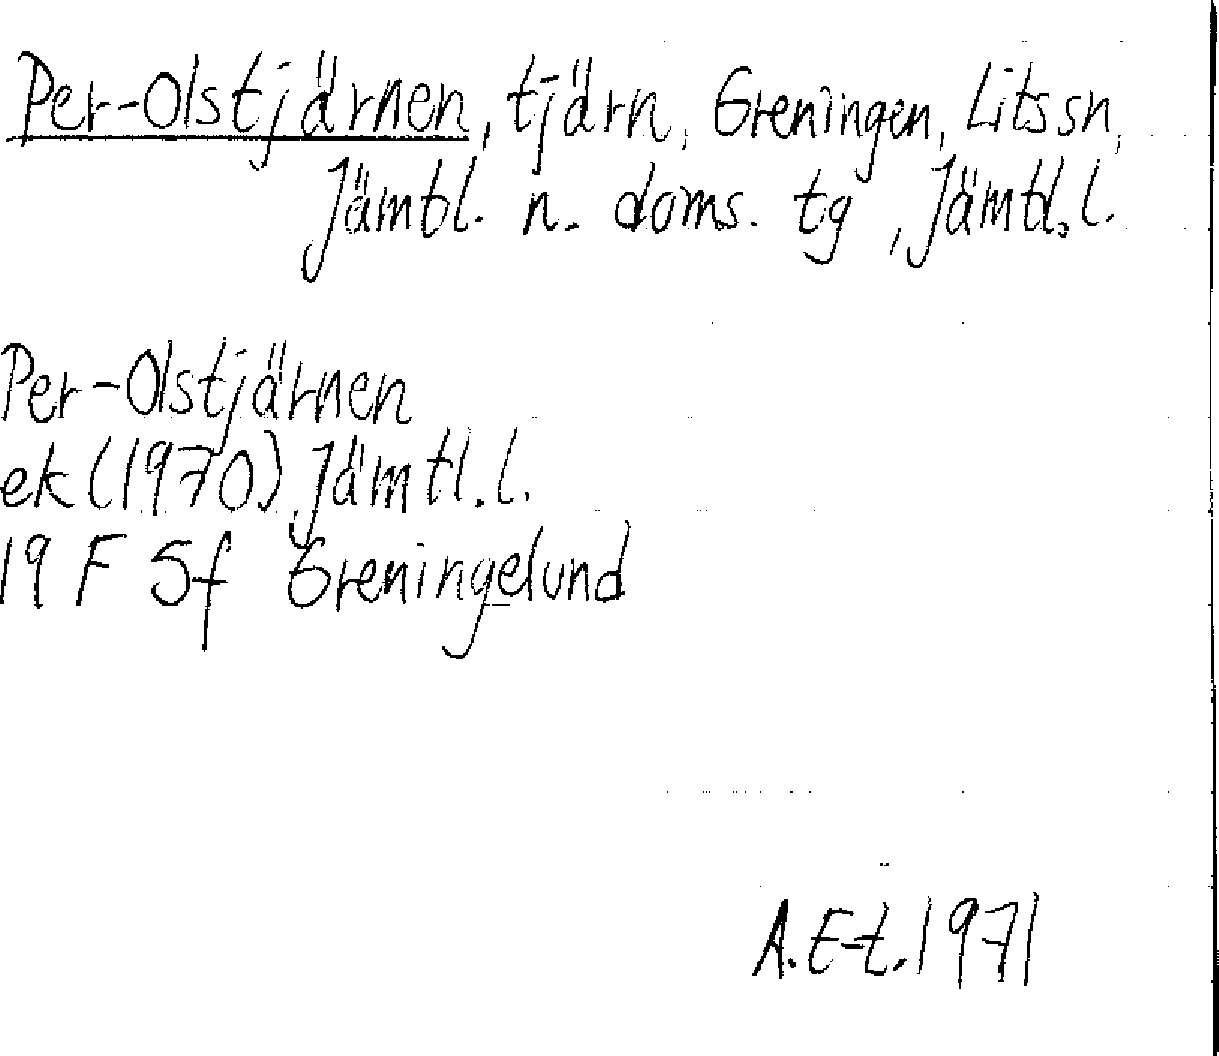 Per-Olstjärnen, tjärn, Greningen, Litssn,
Jämtl. n. doms. tg, Jämtl. l.
Per-Olstjärnen
ek (1970) Jämtl. l.
19 F 5f Greningelund
A. E-t. 1971